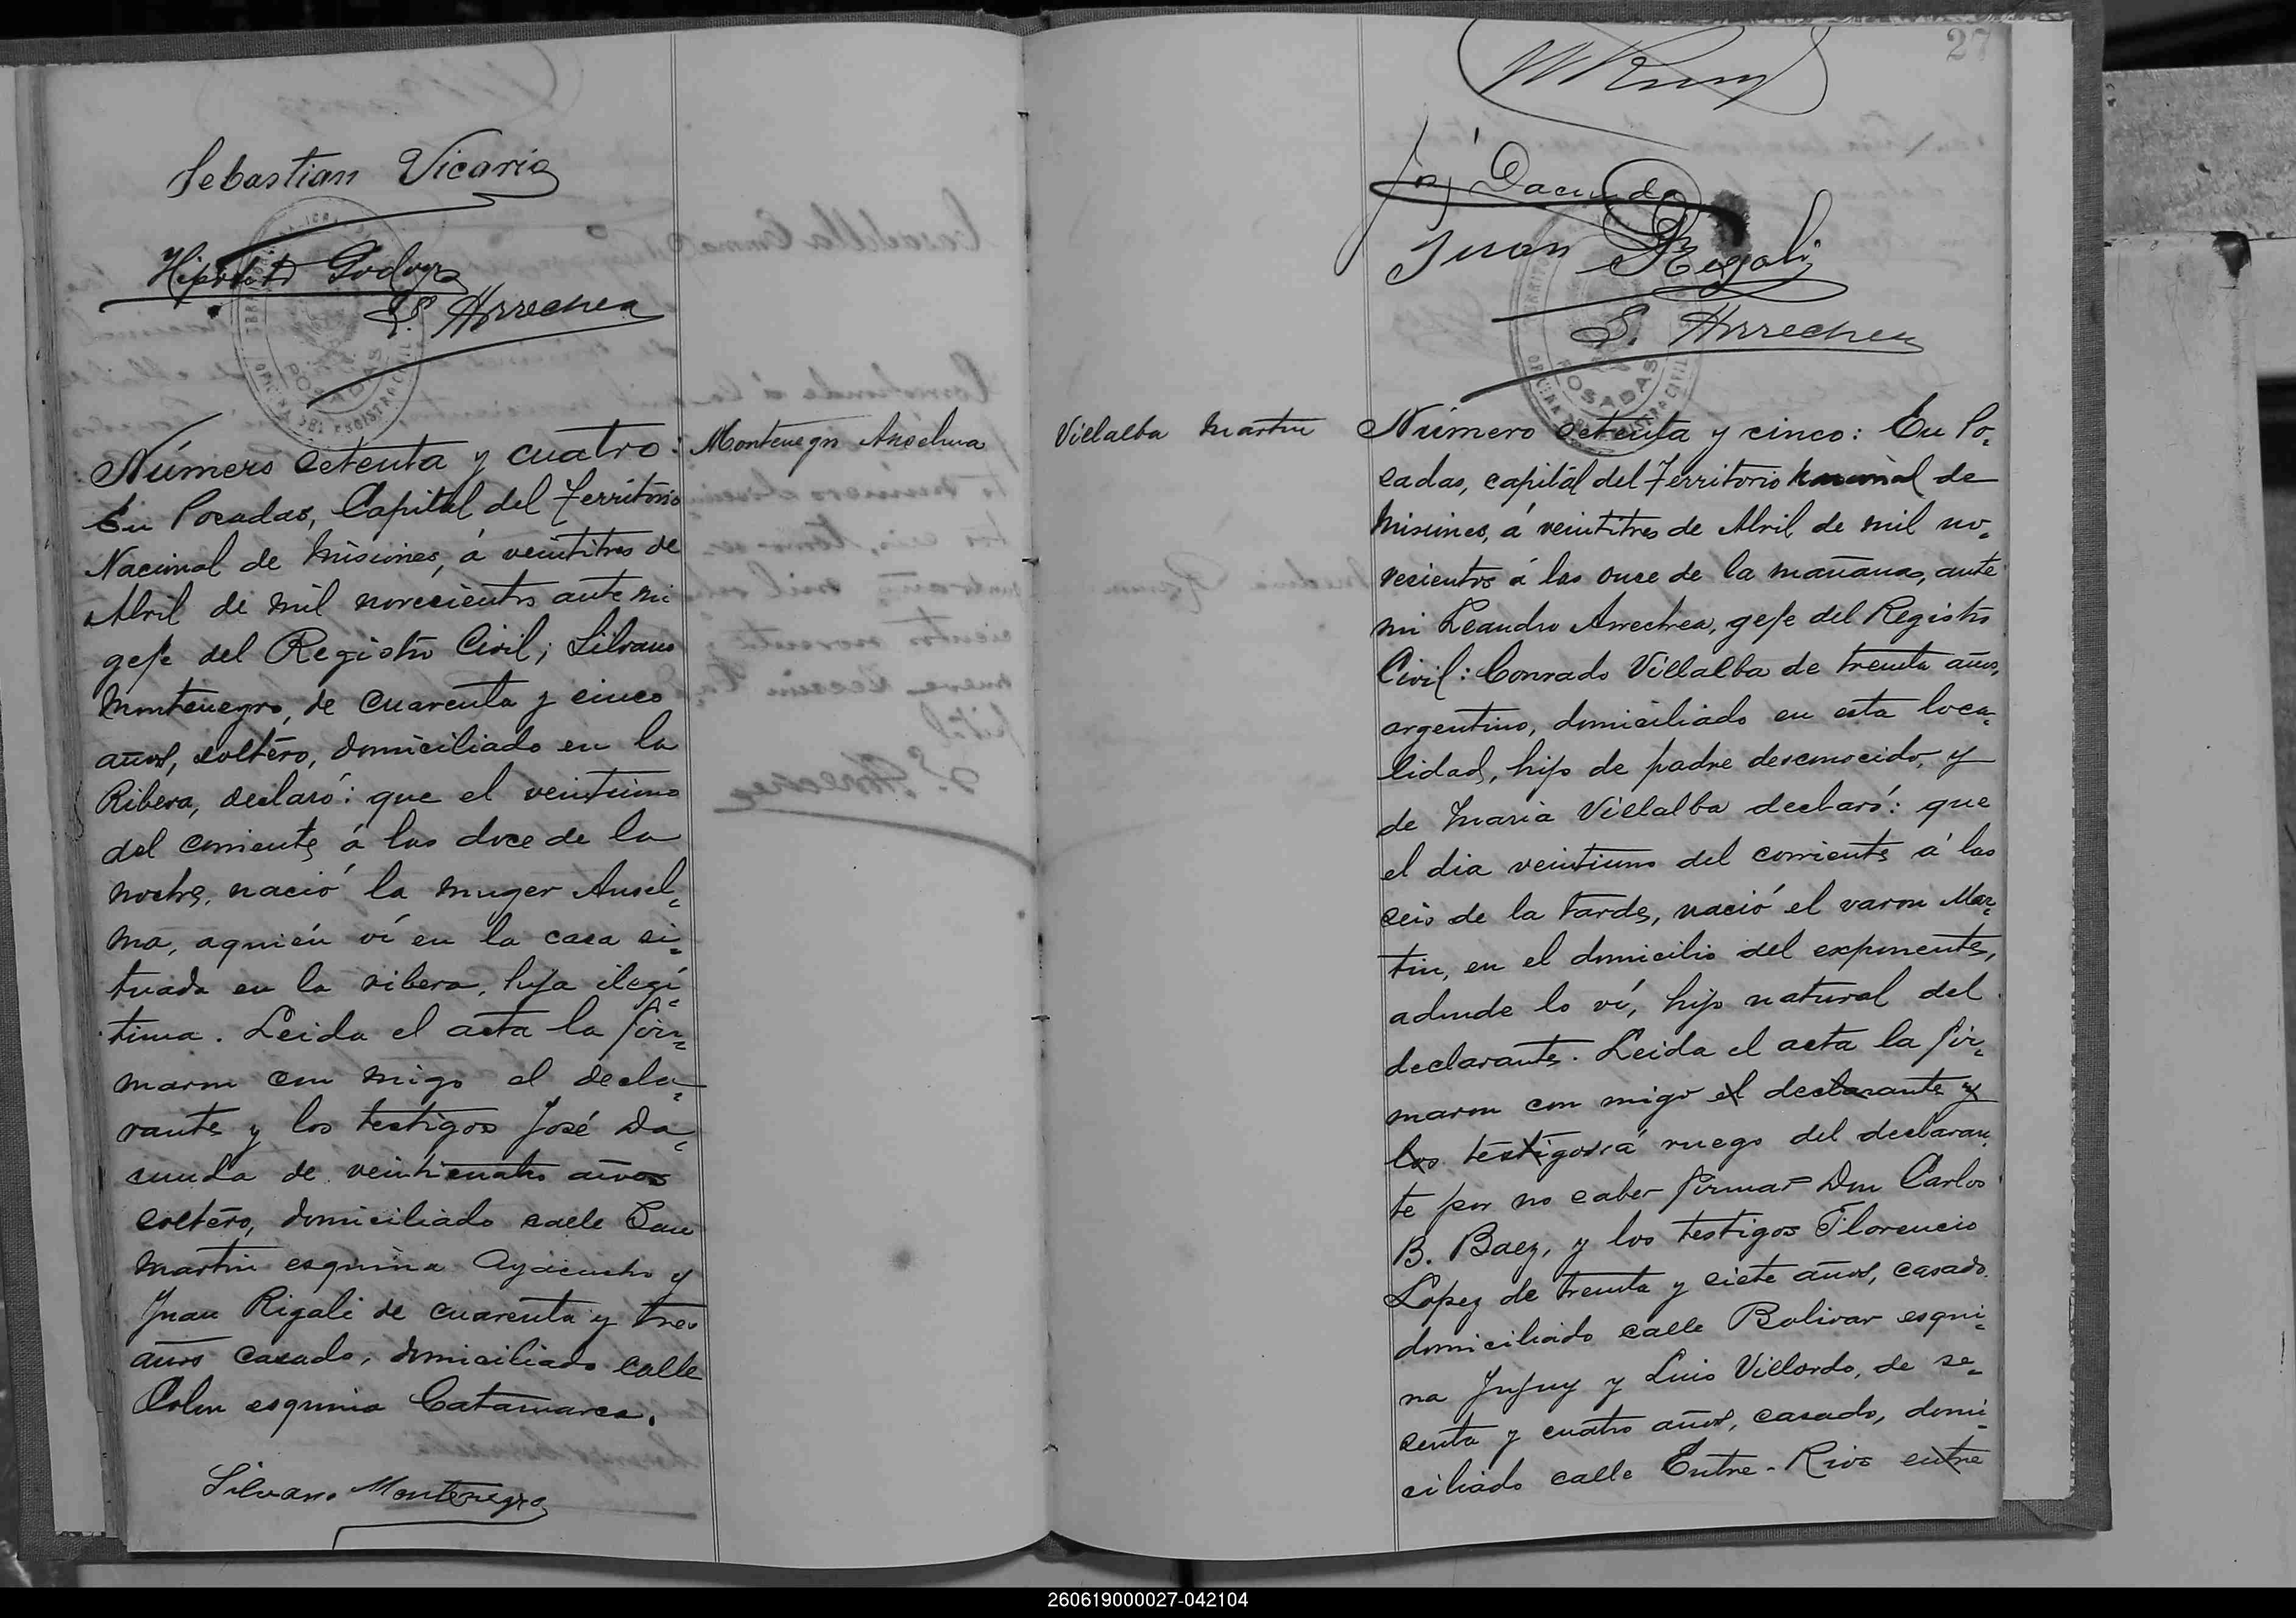 Sebastian Vicario
Hipolito Godoy
L. Arrechea
Montenegro Anselma
Número setenta y cuatro:
En Posadas, Capital del Territorio
Nacional de Misiones, á veintitres de
Abril de mil novecientos ante mi
gefe del Registro Civil; Silvano
Montenegro, de cuarenta y cinco
años, soltero, domiciliado en la
Ribera, declaró: que el veintiuno
del corriente, á las doce de la
noche, nació la muger Ansel=
ma, aquien ví en la casa si=
tuada en la ribera, hija ilegi=
tima. Leida el acta la fir=
maron con migo el decla=
rante y los testigos José Da=
cunda de veinticuatro años
soltero, domiciliado calle San
Martin esquina Ayacucho y
Juan Rigali de cuarenta y tres
años casado, domiciliado calle
Colon esquina Catamarca.
Silvano Montenegro
27
José Dacunda
Juan Rigali
L. Arrechea
OFICINA DEL REGISTRO CIVIL
POSADAS
Villalba Martin
Número setenta y cinco: En Po=
sadas, capital del Territorio Nacional de
Misiones, á veintitres de Abril de mil no=
vecientos á las once de la mañana, ante
mi Leandro Arrechea, gefe del Registro
Civil: Conrado Villalba de treinta años,
argentino, domiciliado en esta loca=
lidad, hijo de padre desconocido, y
de Maria Villalba declaró: que
el dia veintiuno del corriente á las
seis de la tarde, nació el varon Mar=
tin, en el domicilio del exponente,
adonde lo ví, hijo natural del
declarante. Leida el acta la fir=
maron con migo el declarante y
los testigos á ruego del declaran
te por no saber firmar Don Carlos
B. Baez, y los testigos Florencio
Lopez de treinta y siete años, casado
domiciliado calle Bolivar esqui=
na Jujuy y Luis Villordo, de se=
senta y cuatro años, casado, domi=
ciliado calle Entre-Rios entre
260619000027-042104